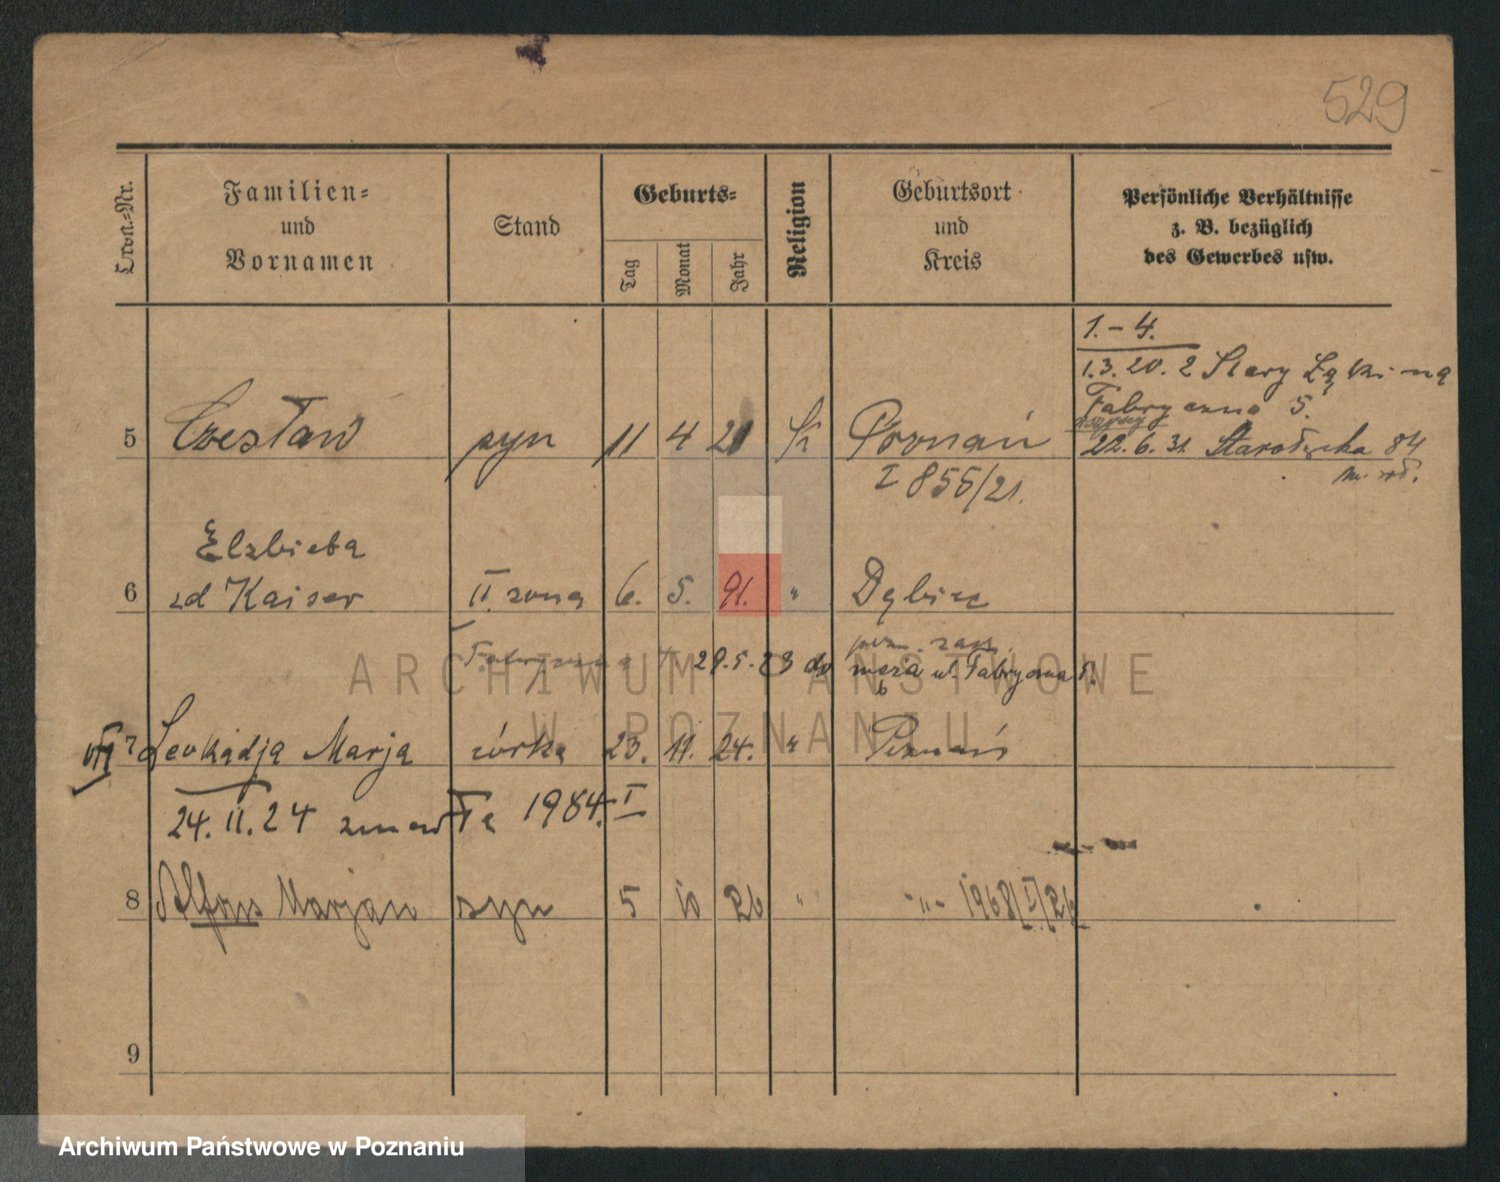 529
Ordn.-Nr.
Familien- und Vornamen
Stand
Geburts-
Tag
Monat
Jahr
Religion
Geburtsort und Kreis
Persönliche Verhältnisse z. B. bezüglich des Gewerbes usw.
1.- 4.
1.3.20. 2 Stary
Fabryczna 5.
5 Czesław syn 11 4 21 Poznań
22.6.31 Starołęcka 84
I 855/21.
Elzbieta
6 zd Kaiser II. zona 6. 5. 91. " Dębiec
29.5.23 do męża ul. Fabryczna
7 Leokadja Marja córka 23. 11. 24. " Poznań
24.11.24 zmarła 1984. I
8 Alfons Marjan syn 5 10 26 " -"- 1968/I/26
9
ARCHIWUM PAŃSTWOWE
W POZNANIU
Archiwum Państwowe w Poznaniu